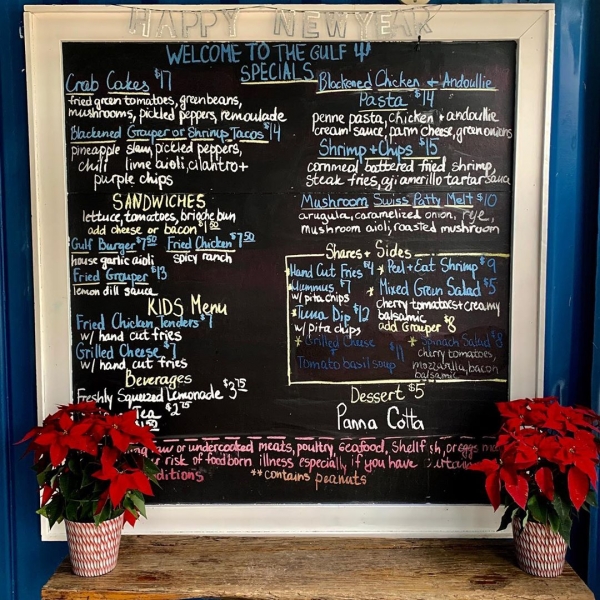 HAPPY NEW YEAR
WELCOME TO THE GULF
SPECIALS
Crab Cakes $17
fried green tomatoes, green beans,
mushrooms, pickled peppers, remoulade
Blackened Grouper or Shrimp Tacos $14
pineapple slaw, pickled peppers,
chili lime aioli, cilantro +
purple chips
SANDWICHES
lettuce, tomatoes, brioche bun
add cheese or bacon $1.50
Gulf Burger $7.50 Fried Chicken $7.50
house garlic aioli spicy ranch
Fried Grouper $13
lemon dill sauce
KIDS Menu
Fried Chicken Tenders $7
w/ hand cut fries
Grilled Cheese $7
w/ hand cut fries
Beverages
Freshly Squeezed Lemonade $3.75
Tea $2.75
Blackened Chicken + Andoullie
Pasta $14
penne pasta, chicken + andoullie
cream sauce, parm cheese, green onions
Shrimp + Chips $15
cornmeal battered fried shrimp,
steak fries, aji amarillo tartar sauce
Mushroom Swiss Patty Melt $10
arugula, caramelized onion, rye,
mushroom aioli, roasted mushroom
Shares + Sides
Hand Cut Fries $4
Hummus $7
w/ pita chips
*Tuna Dip $12
w/ pita chips
*Grilled Cheese
+
Tomato basil soup $11
*Peel + Eat Shrimp $9
*Mixed Green Salad $5
cherry tomatoes + creamy
balsamic
add Grouper $8
*Spinach Salad $8
cherry tomatoes,
mozzarella, bacon
balsamic
Dessert $5
Panna Cotta
raw or undercooked meats, poultry, seafood, shellfish, or eggs
risk of foodborn illness especially if you have
**contains peanuts